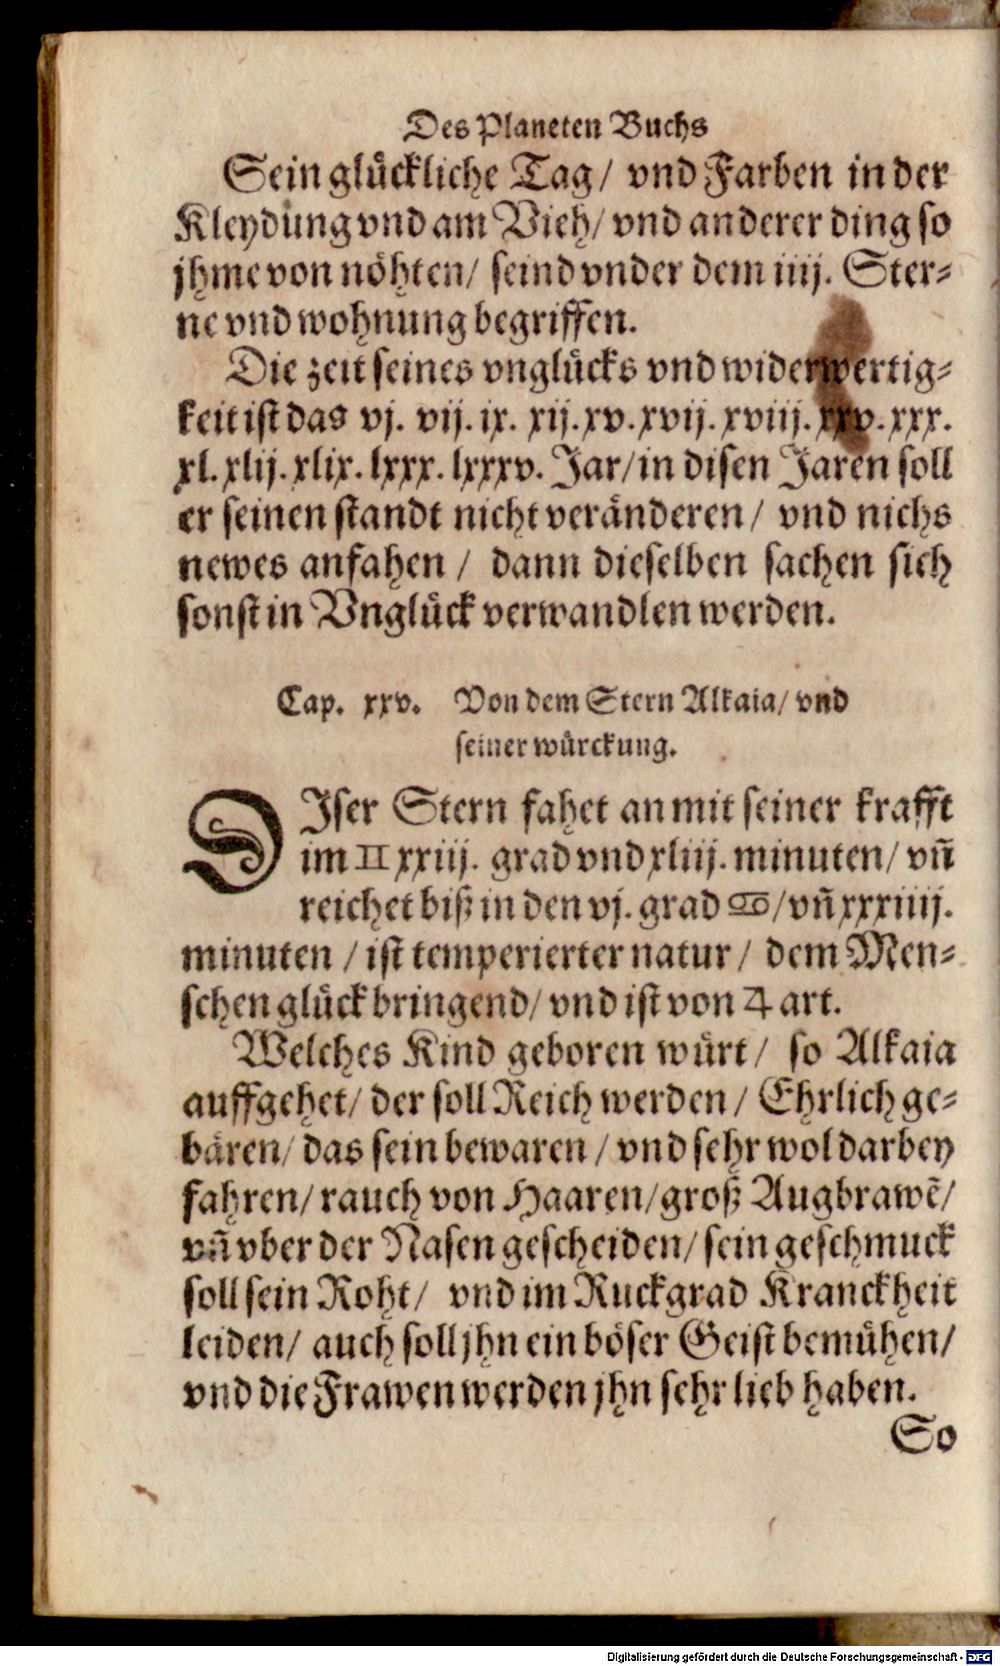 Des Planeten Buchs
Sein glückliche Tag/ vnd Farben in der
Kleydung vnd am Vieh/ vnd anderer ding so
jhme von nöhten/ seind vnder dem iiij. Ster-
ne vnd wohnung begriffen.
Die zeit seines vnglücks vnd widerwertig-
keit ist das vj. vij. ix. xij. xv. xvij. xviij. xxv. xxx.
xl. xlij. xlix. lxxx. lxxxv. Jar/ in disen Jaren soll
er seinen standt nicht veränderen/ vnd nichs
newes anfahen / dann dieselben sachen sich
sonst in Vnglück verwandlen werden.
Cap. xxv. Von dem Stern Alkaia/ vnd
seiner würckung.
DIser Stern fahet an mit seiner krafft
im ♊ xxiij. grad vnd xliij. minuten/ vñ
reichet biß in den vj. grad ♋/ vñ xxxiiij.
minuten / ist temperierter natur / dem Men-
schen glück bringend/ vnd ist von ♃ art.
Welches Kind geboren würt/ so Alkaia
auffgehet/ der soll Reich werden / Ehrlich ge-
bären/ das sein bewaren / vnd sehr wol darbey
fahren/ rauch von Haaren/ groß Augbrawẽ/
vñ vber der Nasen gescheiden/ sein geschmuck
soll sein Roht/ vnd im Ruckgrad Kranckheit
leiden/ auch soll jhn ein böser Geist bemühen/
vnd die Frawen werden jhn sehr lieb haben.
So
Digitalisierung gefördert durch die Deutsche Forschungsgemeinschaft - DFG